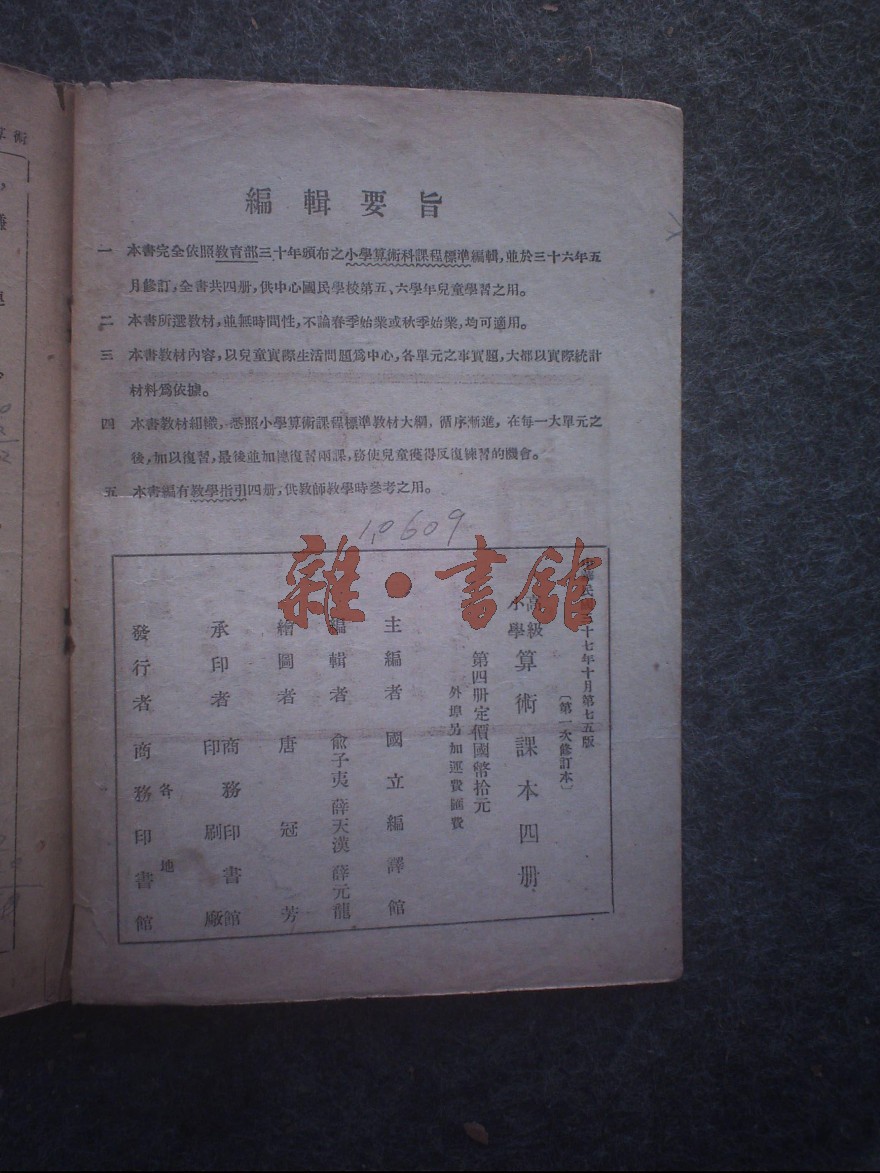 編輯要旨
一 本書完全依照教育部三十年頒布之小學算術科課程標準編輯，並於三十六年五
月修訂，全書共四册，供中心國民學校第五、六學年兒童學習之用。
二 本書所選教材，並無時間性，不論春季始業或秋季始業，均可適用。
三 本書教材內容，以兒童實際生活問題爲中心，各單元之事實題，大都以實際統計
材料爲依據。
四 本書教材組織，悉照小學算術課程標準教材大綱，循序漸進，在每一大單元之
後，加以復習，最後並加總復習兩課，務使兒童獲得反復練習的機會。
五 本書編有教學指引四册，供教師教學時參考之用。
10609
雜·書館
民 十七年十月第七五版
〔第一次修訂本〕
高級小學 算術課本四册
第四册定價國幣拾元
外埠另加運費匯費
主編者 國立編譯館
編輯者 俞子夷 薛天漢 薛元龍
繪圖者 唐冠芳
承印者 商務印書館印刷廠
發行者 各地商務印書館
算術